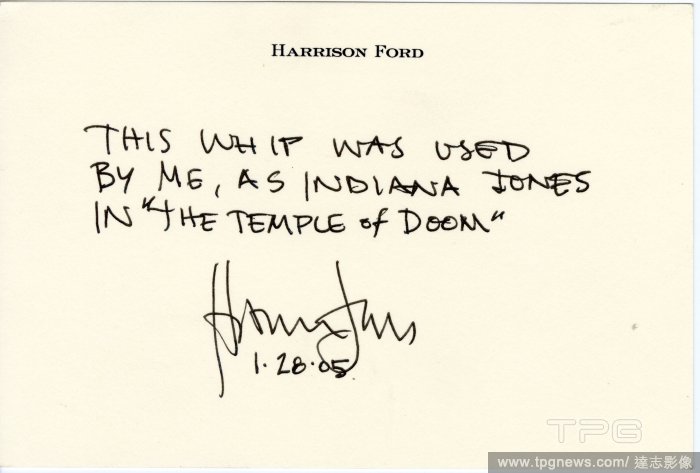 HARRISON FORD
THIS WHIP WAS USED
BY ME, AS INDIANA JONES
IN "THE TEMPLE of DOOM"
Harrison Ford
1·28·05
TPG
www.tpgnews.com/ 達志影像